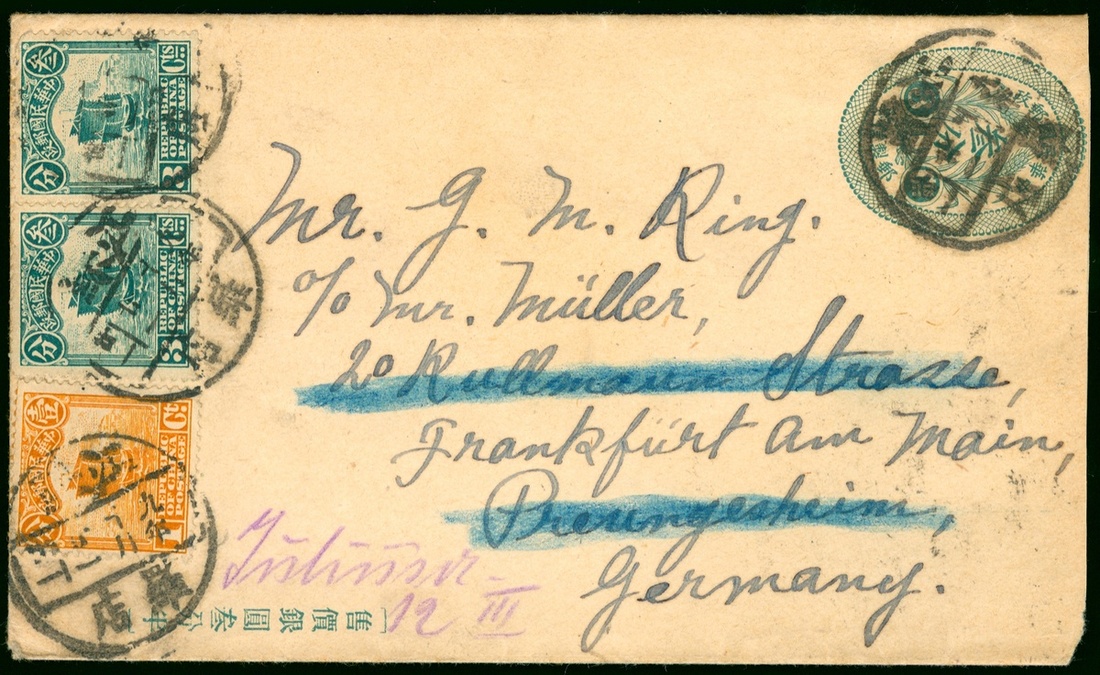 Mr. G. M. Ring.
c/o Mr. Müller,
20 Kullmann Strasse,
Frankfürt am Main,
Preungesheim,
Germany.
12 III
售價銀圓叁分半
叁
中華民國郵政
分
3 Cts
REPUBLIC
OF CHINA
POSTAGE
叁
中華民國郵政
分
3 Cts
REPUBLIC
OF CHINA
POSTAGE
壹
中華民國郵政
分
1 Ct
REPUBLIC
OF CHINA
POSTAGE
叁分